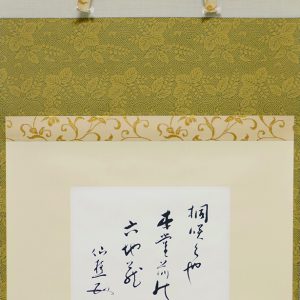 桐咲くや
本堂前の
六地蔵